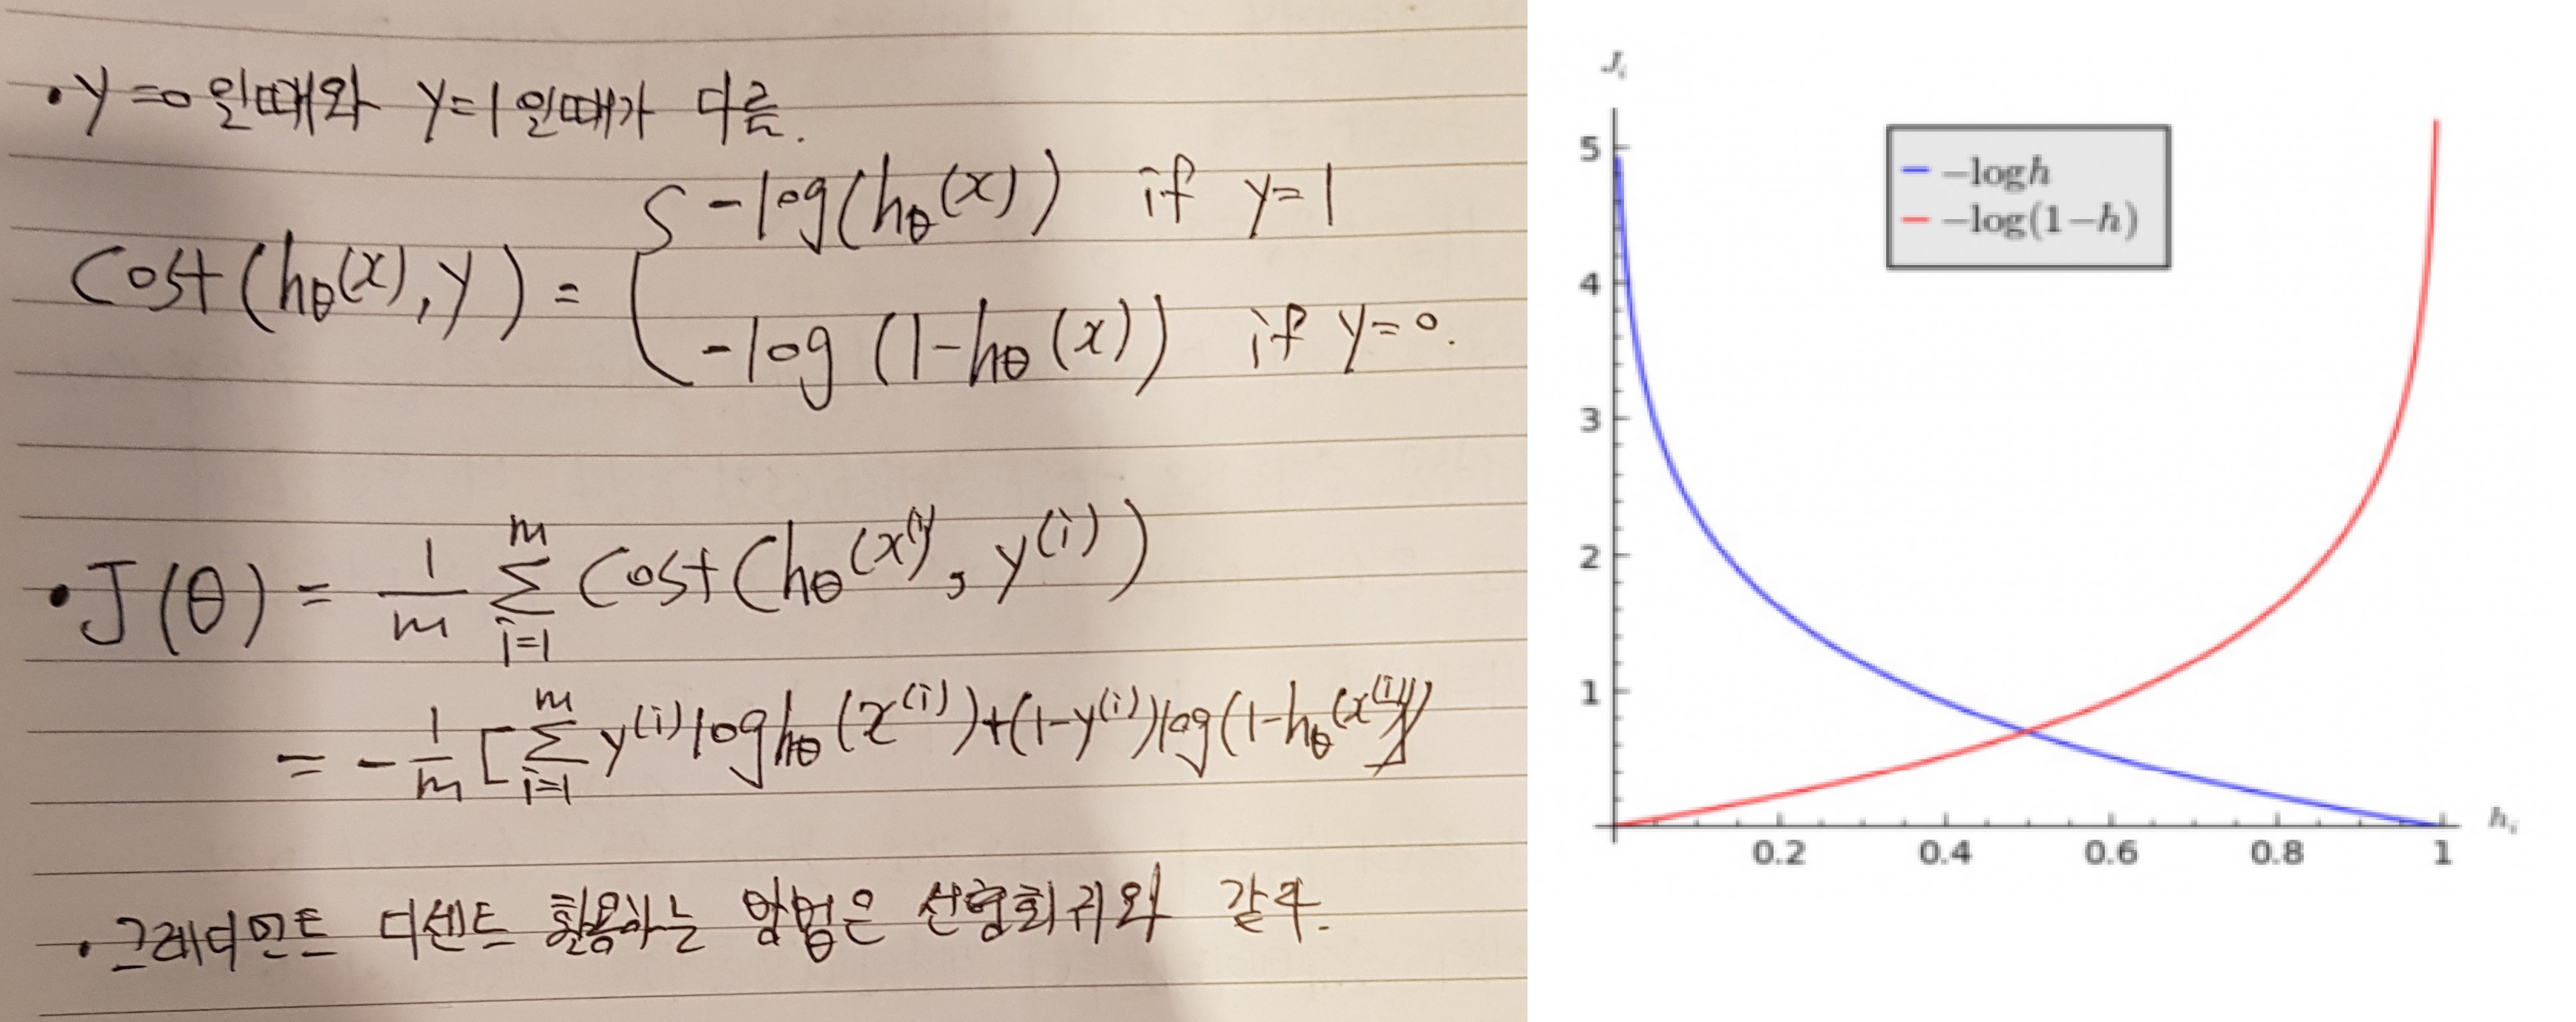 • y=0 일때와 y=1일때가 다름.
Cost(hθ(x), y) = { -log(hθ(x)) if y=1
-log(1-hθ(x)) if y=0.
• J(θ) = 1/m Σ_{i=1}^{m} Cost(hθ(x^(i), y^(i))
= -1/m [Σ_{i=1}^{m} y^(i) log hθ(x^(i)) + (1-y^(i)) log(1-hθ(x^(i)))]
• 그래디언트 디센트 활용하는 방법은 선형회귀와 같다.
J_i
5
4
3
2
1
-log h
-log(1-h)
0.2 0.4 0.6 0.8 1
h_i